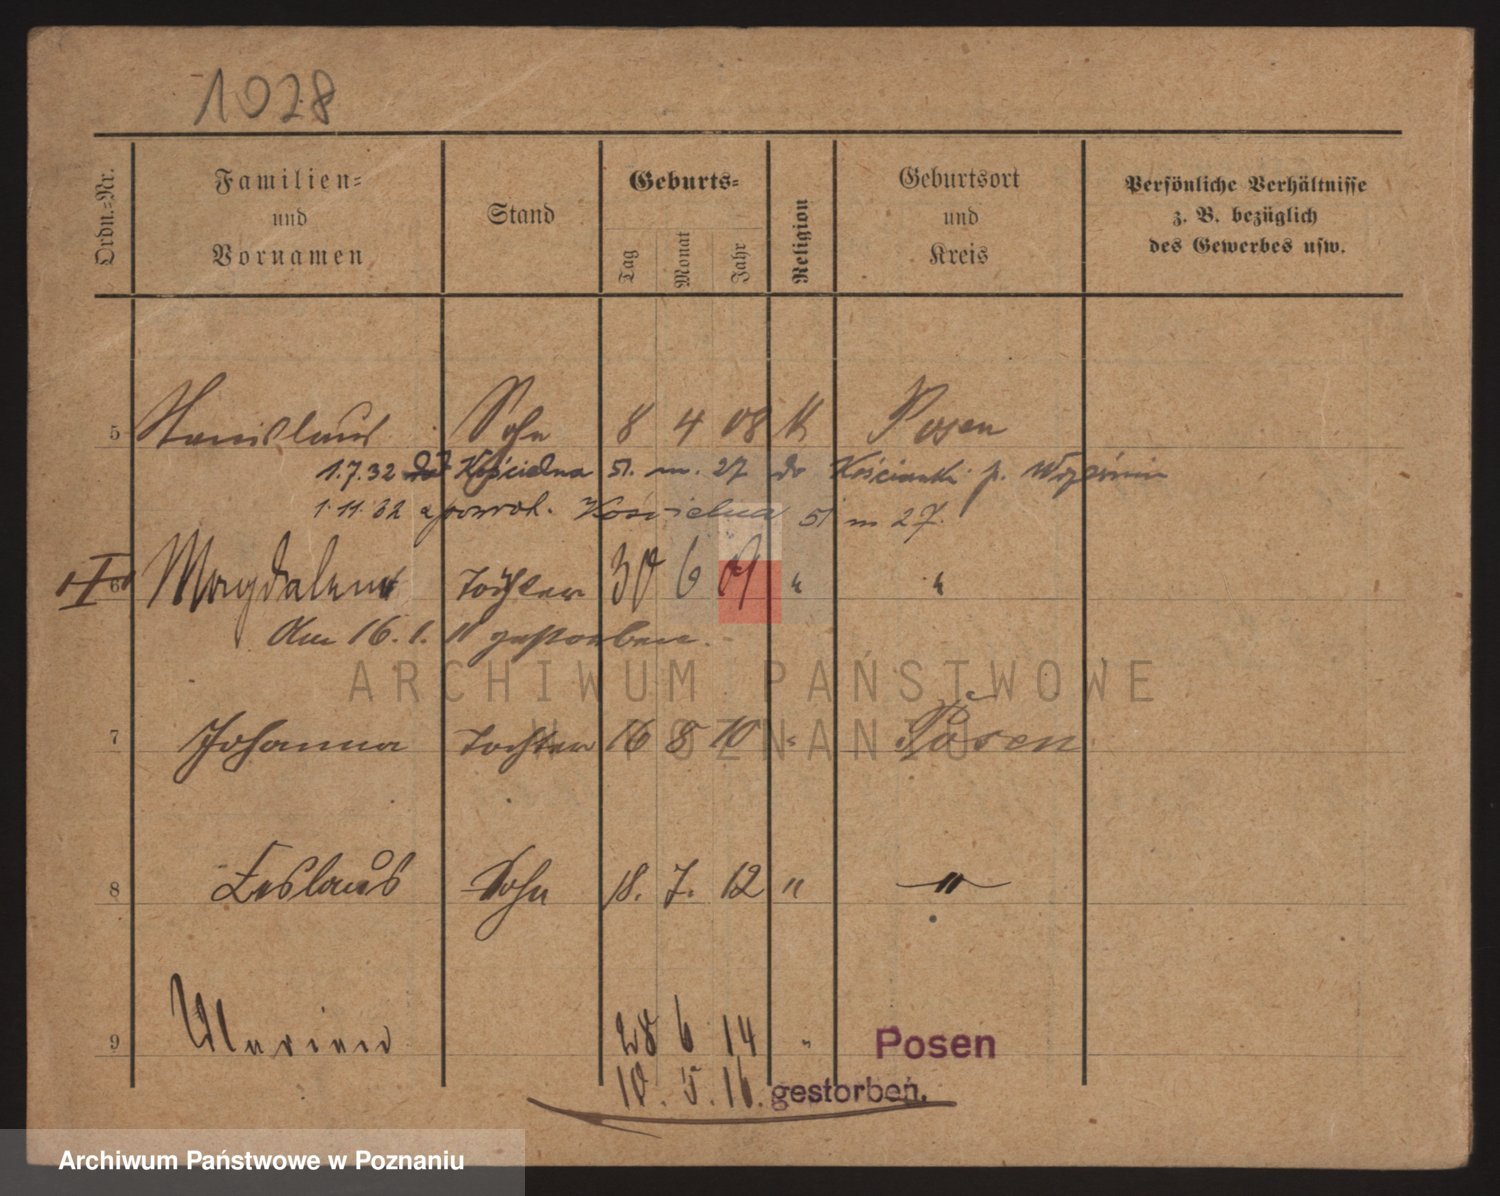 1028
Ordn.-Nr.
Familien-
und
Vornamen
Stand
Geburts-
Tag
Monat
Jahr
Religion
Geburtsort
und
Kreis
Persönliche Verhältnisse
z. B. bezüglich
des Gewerbes usw.
5 Stanislaus Sohn 8 4 08 K Posen
1.7.32 Kościelna 51. m. 27 do Kościanki p. Września
1.11.32 z powrot. Kościelna 51 m 27.
6 Magdalena Tochter 30 6 09 " "
Am 16.1.11 gestorben.
ARCHIWUM PAŃSTWOWE
W POZNANIU
7 Johanna Tochter 16 8 10 " Posen
8 Zeslaus Sohn 18. 7. 12 " "
9 Marian 28 6 14 " Posen
10. 5. 16. gestorben.
Archiwum Państwowe w Poznaniu